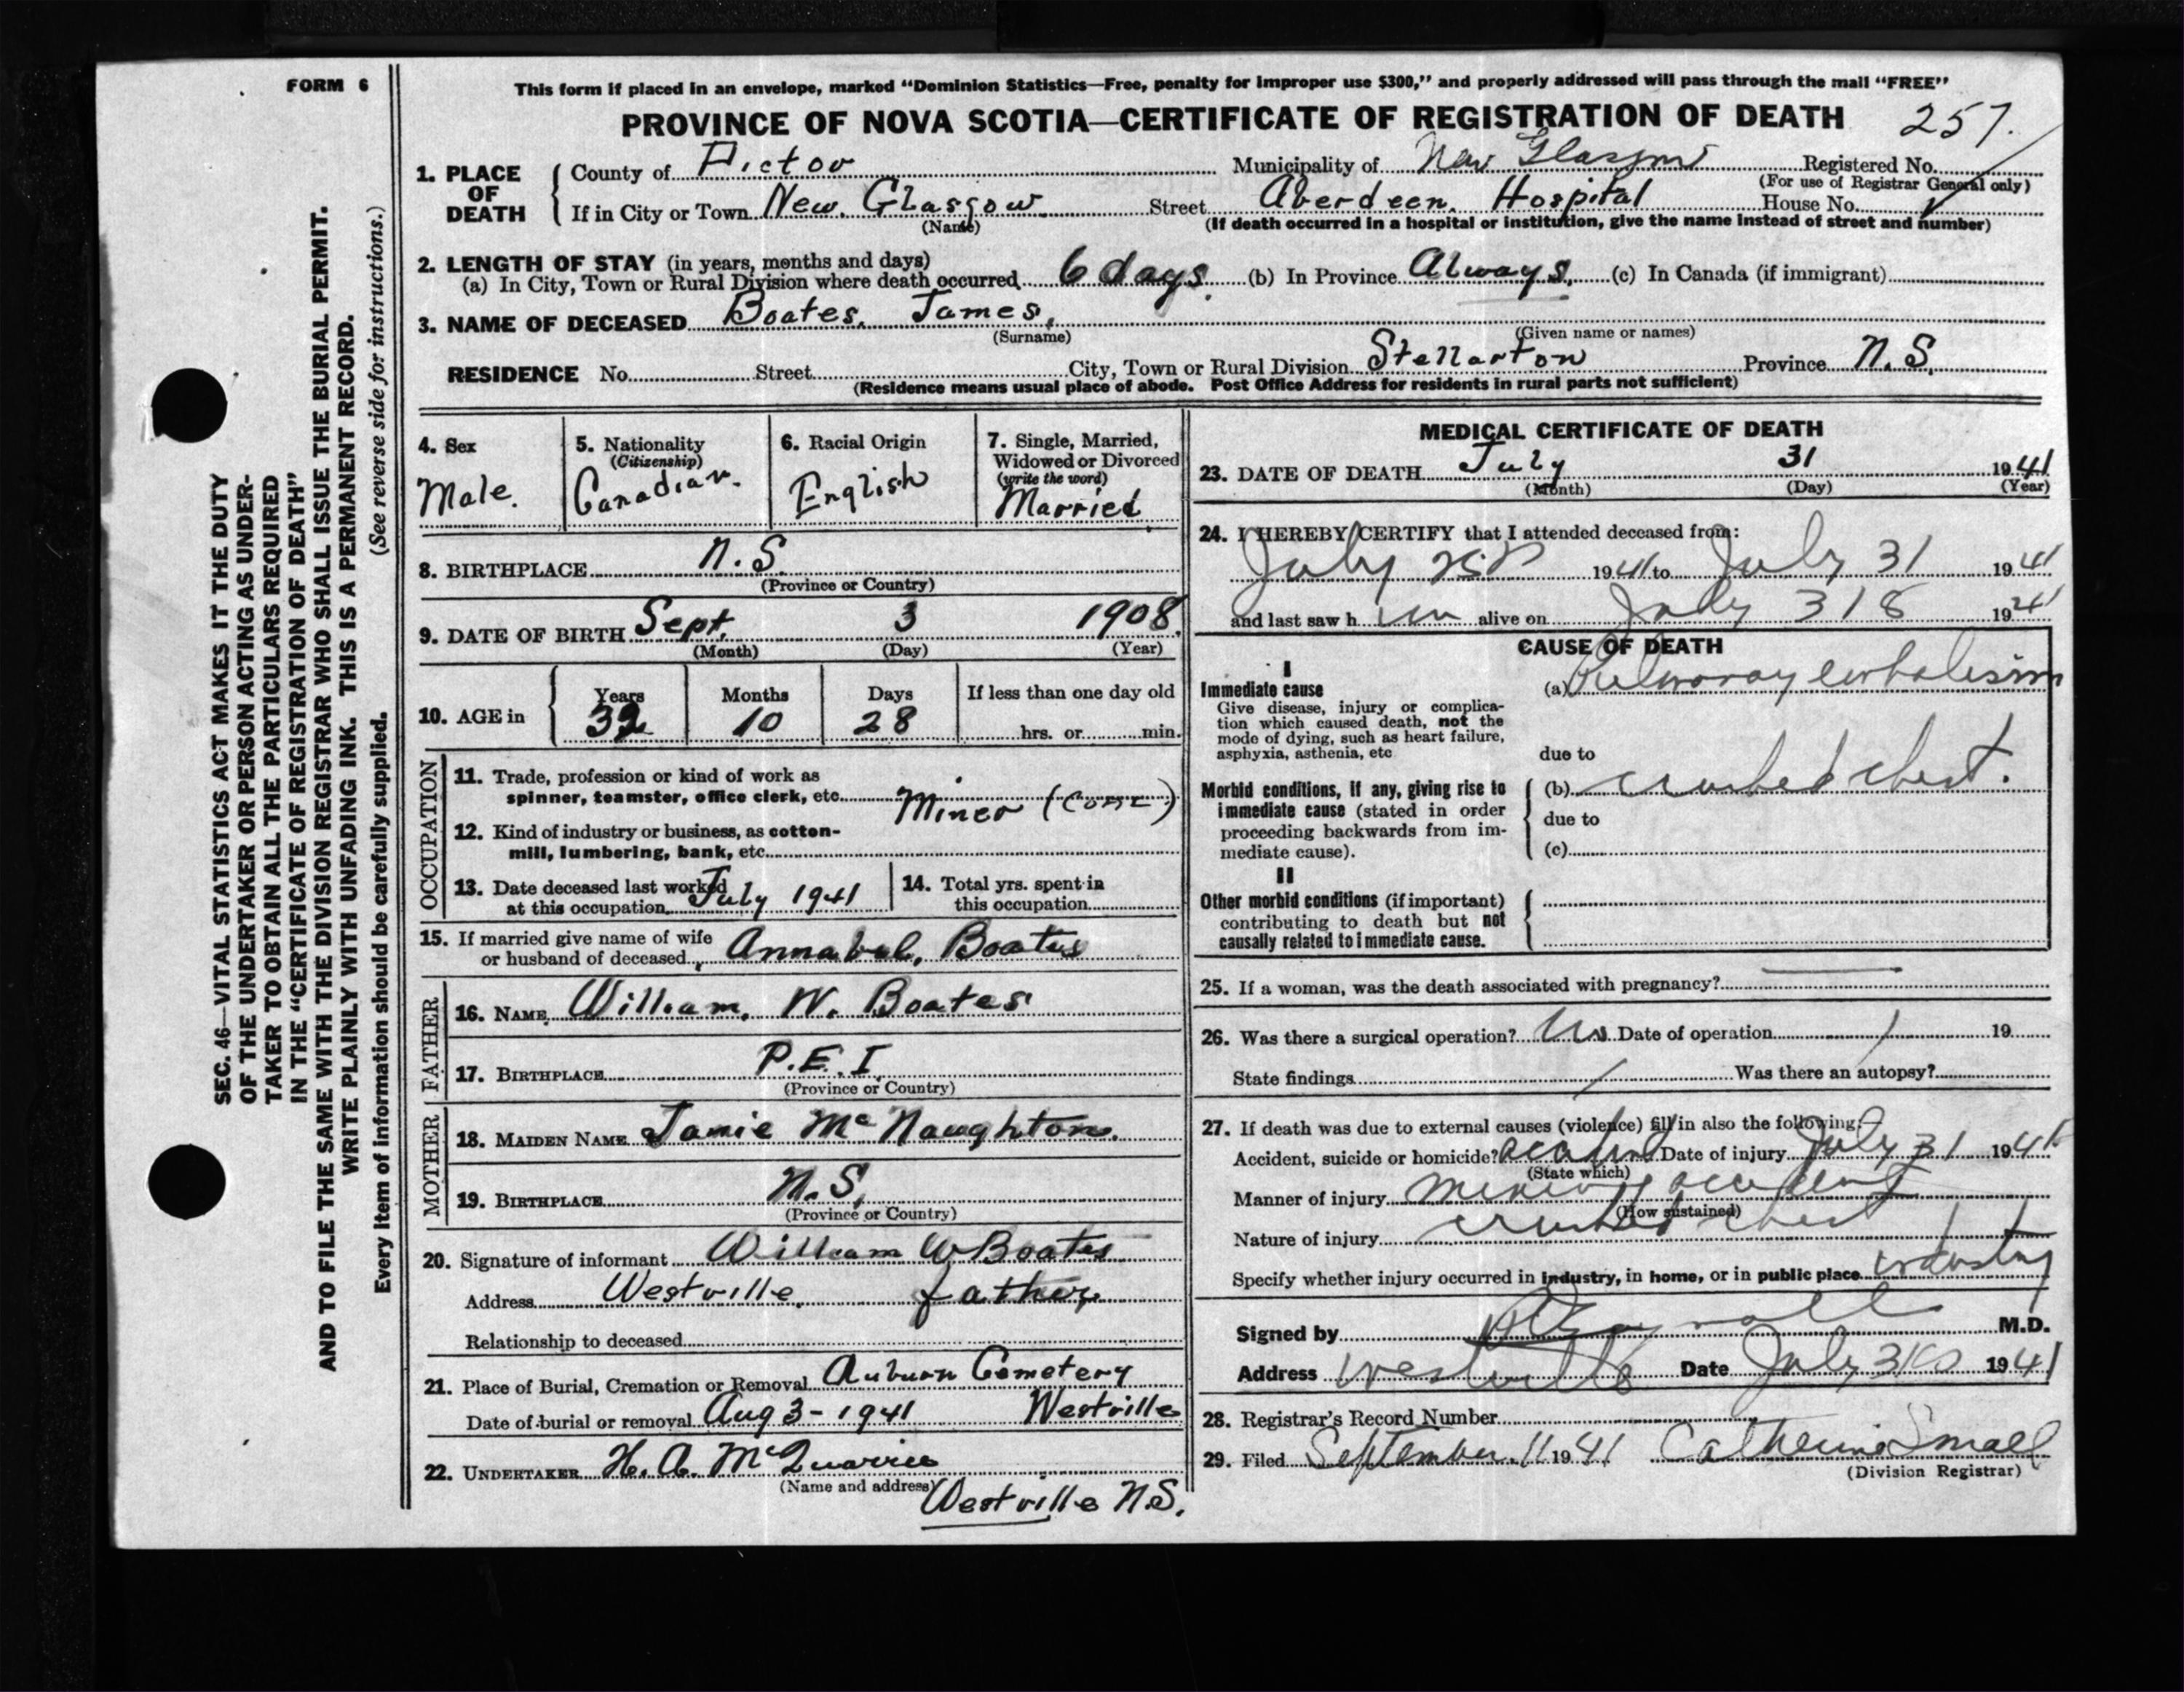 FORM 6
This form if placed in an envelope, marked "Dominion Statistics—Free, penalty for improper use $300," and properly addressed will pass through the mail "FREE"
PROVINCE OF NOVA SCOTIA—CERTIFICATE OF REGISTRATION OF DEATH 257.
1. PLACE OF DEATH
County of Pictou Municipality of New Glasgow Registered No.
(For use of Registrar General only)
If in City or Town New Glasgow Street Aberdeen Hospital House No.
(Name) (If death occurred in a hospital or institution, give the name instead of street and number)
2. LENGTH OF STAY (in years, months and days)
(a) In City, Town or Rural Division where death occurred 6 days (b) In Province Always (c) In Canada (if immigrant)
3. NAME OF DECEASED Boates, James,
(Surname) (Given name or names)
RESIDENCE No. Street City, Town or Rural Division Stellarton Province N.S.
(Residence means usual place of abode. Post Office Address for residents in rural parts not sufficient)
4. Sex
Male.
5. Nationality
(Citizenship)
Canadian.
6. Racial Origin
English
7. Single, Married,
Widowed or Divorced
(write the word)
Married
8. BIRTHPLACE N.S.
(Province or Country)
9. DATE OF BIRTH Sept. 3 1908.
(Month) (Day) (Year)
10. AGE in
Years Months Days If less than one day old
32 10 28 hrs. or min.
OCCUPATION
11. Trade, profession or kind of work as
spinner, teamster, office clerk, etc. Miner
12. Kind of industry or business, as cotton-
mill, lumbering, bank, etc.
13. Date deceased last worked
at this occupation July 1941
14. Total yrs. spent in
this occupation
15. If married give name of wife
or husband of deceased Annabel, Boates
FATHER
16. NAME William. W. Boates
17. BIRTHPLACE P.E.I.
(Province or Country)
MOTHER
18. MAIDEN NAME Janie McNaughton.
19. BIRTHPLACE N.S.
(Province or Country)
20. Signature of informant William W Boates
Address Westville, father
Relationship to deceased
21. Place of Burial, Cremation or Removal Auburn Cemetery
Date of burial or removal Aug 3 - 1941 Westville
22. UNDERTAKER H. A. McQuarrie
(Name and address) Westville N.S.
MEDICAL CERTIFICATE OF DEATH
23. DATE OF DEATH July 31 1941
(Month) (Day) (Year)
24. I HEREBY CERTIFY that I attended deceased from:
July 1941 to July 31 1941
and last saw him alive on July 31 1941
CAUSE OF DEATH
I
Immediate cause
Give disease, injury or complica-
tion which caused death, not the
mode of dying, such as heart failure,
asphyxia, asthenia, etc
(a) Pulmonary embolism
due to
Morbid conditions, if any, giving rise to
immediate cause (stated in order
proceeding backwards from im-
mediate cause).
(b) crushed chest.
due to
(c)
II
Other morbid conditions (if important)
contributing to death but not
causally related to immediate cause.
25. If a woman, was the death associated with pregnancy?
26. Was there a surgical operation? No Date of operation 19
State findings Was there an autopsy?
27. If death was due to external causes (violence) fill in also the following:
Accident, suicide or homicide? accident Date of injury July 31 1941
(State which)
Manner of injury mining accident
(How sustained)
Nature of injury crushed chest
Specify whether injury occurred in industry, in home, or in public place industry
Signed by M.D.
Address Westville Date July 31 1941
28. Registrar's Record Number
29. Filed September 11 1941 Catherine Small
(Division Registrar)
SEC. 46—VITAL STATISTICS ACT MAKES IT THE DUTY
OF THE UNDERTAKER OR PERSON ACTING AS UNDER-
TAKER TO OBTAIN ALL THE PARTICULARS REQUIRED
IN THE "CERTIFICATE OF REGISTRATION OF DEATH"
AND TO FILE THE SAME WITH THE DIVISION REGISTRAR WHO SHALL ISSUE THE BURIAL PERMIT.
WRITE PLAINLY WITH UNFADING INK. THIS IS A PERMANENT RECORD.
Every item of information should be carefully supplied. (See reverse side for instructions.)